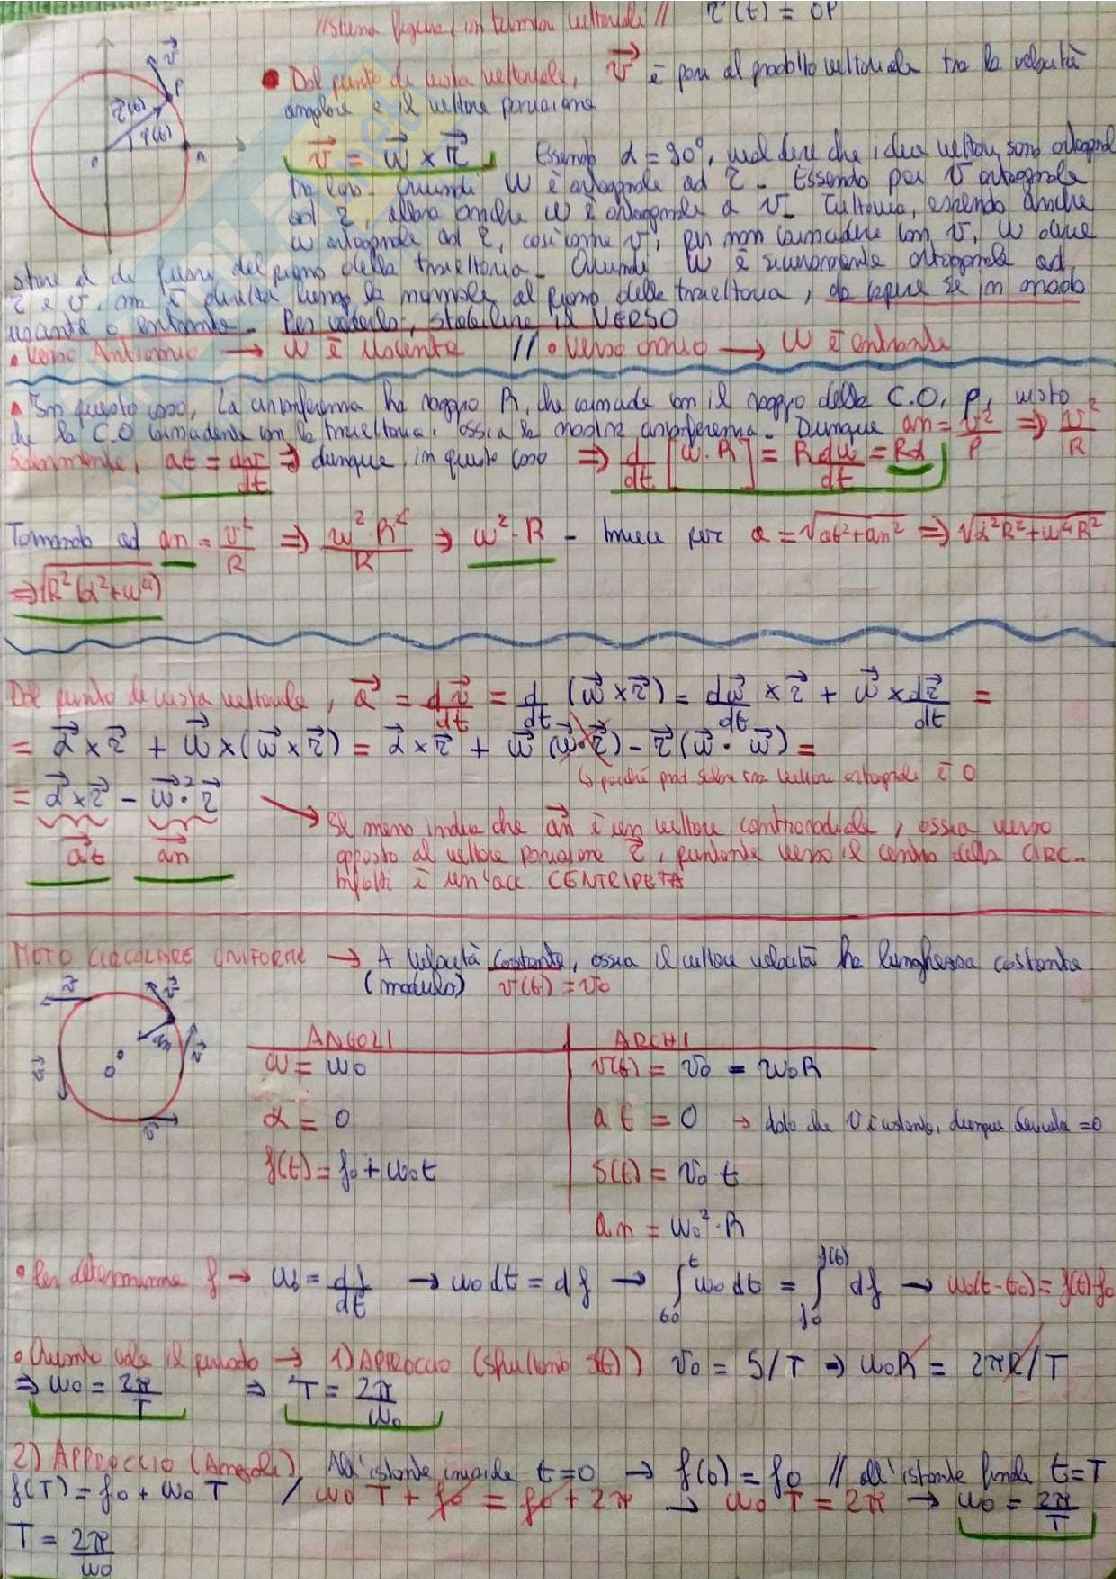 //stessa figura, in termini vettoriali// r(t) = OP
v
P
r(t)
φ(t)
O
A
• Dal punto di vista vettoriale, v è pari al prodotto vettoriale tra la velocità
angolare e il vettore posizione
v = w × r Essendo α = 90°, vuol dire che i due vettori sono ortogonali
tra loro. Quindi W è ortogonale ad r. Essendo poi v ortogonale
ad r, allora anche w è ortogonale a v. Tuttavia, essendo anche
w ortogonale ad r, così come v, per non coincidere con v, w deve
stare al di fuori del piano della traiettoria. Quindi w è sicuramente ortogonale ad
r e v, ma è diretta lungo la normale al piano della traiettoria, da capire se in modo
uscente o entrante. Per vederlo, stabilire il VERSO
• Verso Antiorario → w è uscente // • Verso orario → w è entrante
In questo caso, la circonferenza ha raggio R, che coincide con il raggio della C.O, ρ, visto
che la C.O coincidente con la traiettoria, ossia la nostra circonferenza. Dunque an = v²/ρ ⇒ v²/R
at = dv/dt ⇒ dunque, in questo caso ⇒ d/dt [w·R] = R dw/dt = Rα
Tornando ad an = v²/R ⇒ w²·R²/R ⇒ w²·R - Invece per a = √at²+an² ⇒ √α²R²+w⁴R²
⇒ √R²(α²+w⁴)
Dal punto di vista vettoriale, a = dv/dt = d/dt (w×r) = dw/dt × r + w × dr/dt =
= α×r + w×(w×r) = α×r + w(w·r) - r(w·w) =
↳ perché prod scalare tra vettori ortogonali è 0
= α×r - w²·r
at an
Il meno indica che an è un vettore controradiale, ossia verso
opposto al vettore posizione r, puntante verso il centro della CIRC.
Infatti è un'acc CENTRIPETA
MOTO CIRCOLARE UNIFORME → A velocità costante, ossia il vettore velocità ha lunghezza costante
(modulo) v(t) = v0
v
v
an
v
v
v
O
ANGOLI ARCHI
w = w0 v(t) = v0 = w0R
α = 0 at = 0 → dato che v è costante, dunque derivata = 0
φ(t) = φ0 + w0t S(t) = v0 t
an = w0²·R
• Per determinare φ → w0 = dφ/dt → w0 dt = dφ → ∫ t t0 w0 dt = ∫ φ(t) φ0 dφ → w0(t-t0) = φ(t)-φ0
• Quanto vale il periodo → 1) APPROCCIO (Sfruttiamo S(t)) v0 = S/T ⇒ w0R = 2πR/T
⇒ w0 = 2π/T ⇒ T = 2π/w0
2) APPROCCIO (Angoli) All'istante iniziale t=0 → φ(0) = φ0 // all'istante finale t=T
φ(T) = φ0 + w0 T / w0 T + φ0 = φ0 + 2π → w0 T = 2π → w0 = 2π/T
T = 2π/w0